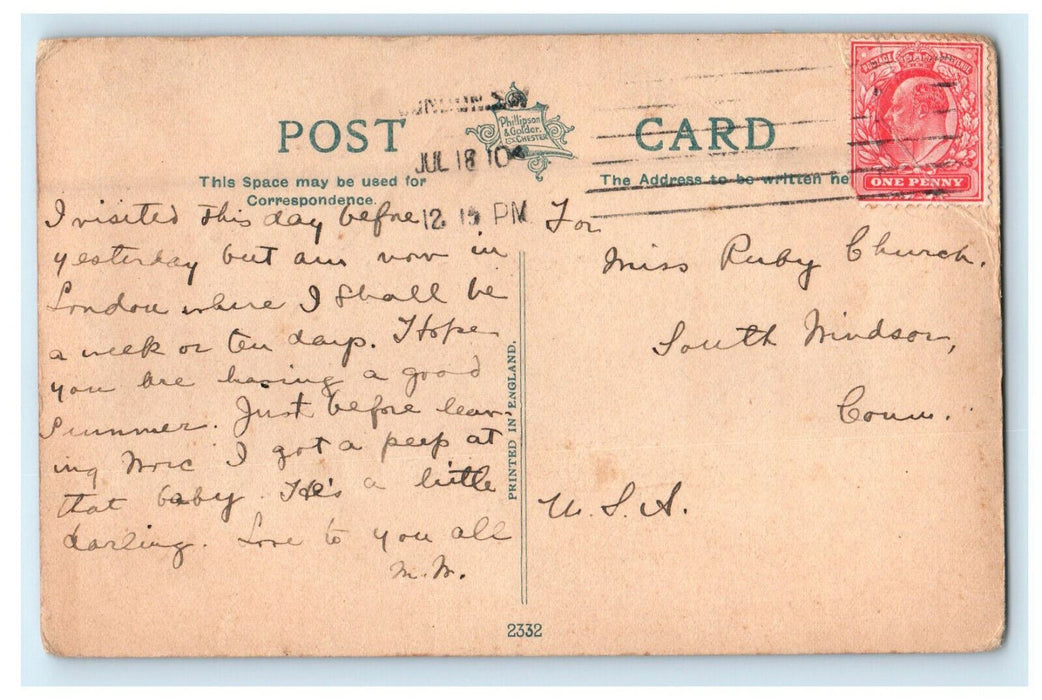 POST CARD
Phillipson
& Golder.
CHESTER
LONDON. S.W
JUL 18 10
12. 15 PM
POSTAGE REVENUE
ONE PENNY
This Space may be used for
Correspondence.
The Address to be written he
I visited this day before
yesterday but am now in
London where I shall be
a week or ten days. I Hope
you are having a good
Summer. Just before leav-
ing Worc I got a peep at
that baby. He's a little
darling. Love to you all
M.W.
For
Miss Ruby Church.
South Windsor,
Conn.
U.S.A.
PRINTED IN ENGLAND.
2332